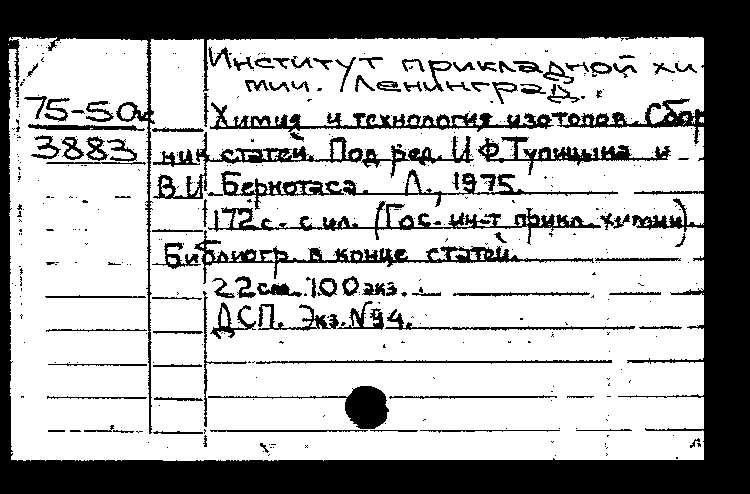 Институт прикладной хи-
мии. Ленинград.
75-50к
Химия и технология изотопов. Сбор
3883
ник статей. Под ред. И.Ф.Тупицына и
В.И. Бернотаса. Л., 1975.
172 с. с ил. (Гос. ин-т прикл. химии).
Библиогр. в конце статей.
22 см. 100 экз.
ДСП. Экз. №94.